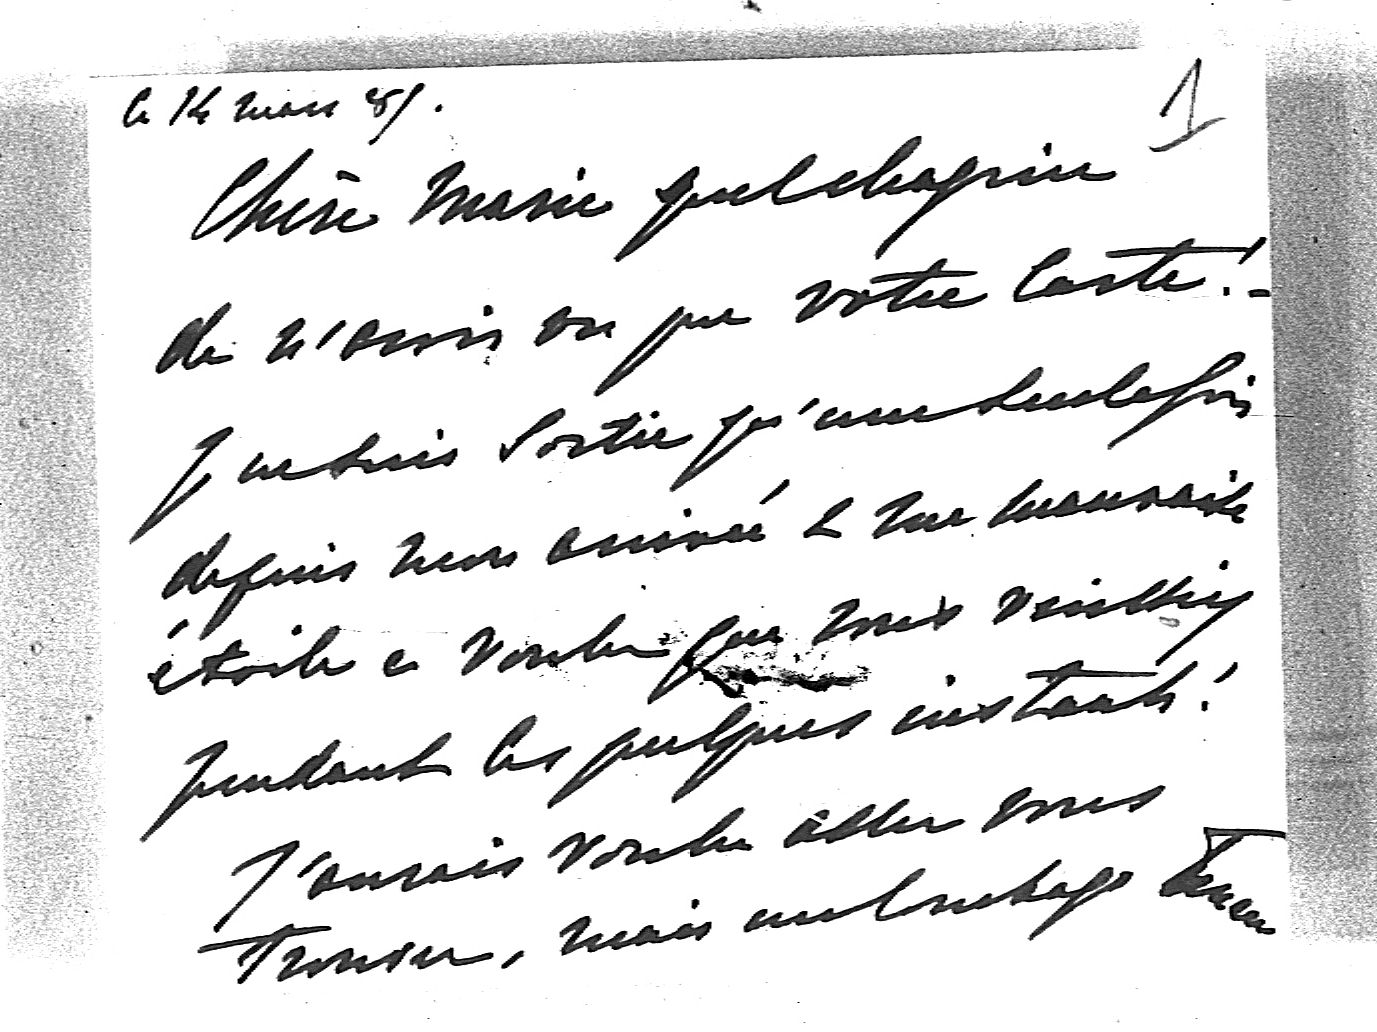 le 14 mars 81.
1
Chère Marie quel chagrin
de n'avoir vu que votre carte! -
Je ne suis sortie qu'une seule fois
depuis mon arrivée & ma mauvaise
étoile a voulu que vous veniez
pendant ces quelques instants!
J'aurais voulu aller vous
trouver, mais